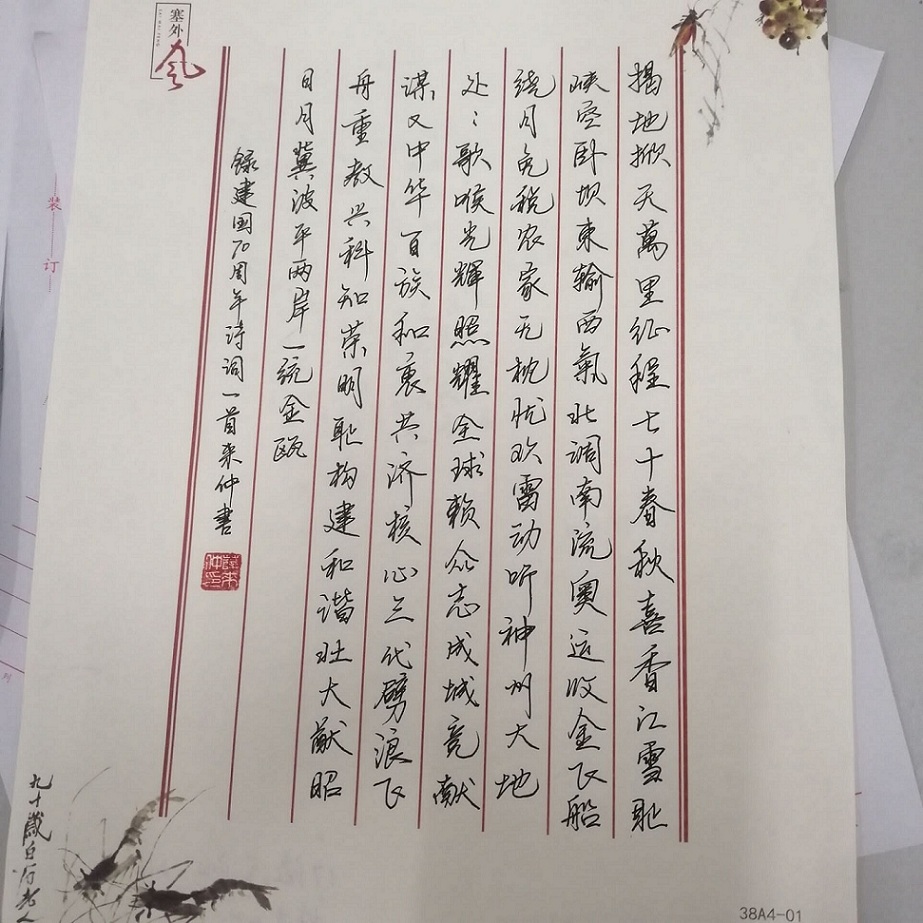 揭地掀天萬里征程七十春秋喜香江雪耻
峡空卧坝东输西氣北调南流奥运收金飞船
绕月免税农家无枕忧欢雷动听神州大地
处〻歌喉光辉照耀全球赖众志成城竞献
谋又中华百族和衷共济核心三代劈浪飞
舟重教兴科知荣明耻构建和谐壮大猷昭
日月冀波平两岸一统金瓯
録建国70周年诗词一首来仲書
塞外
风
九十歲白石老人
38A4-01
装
订